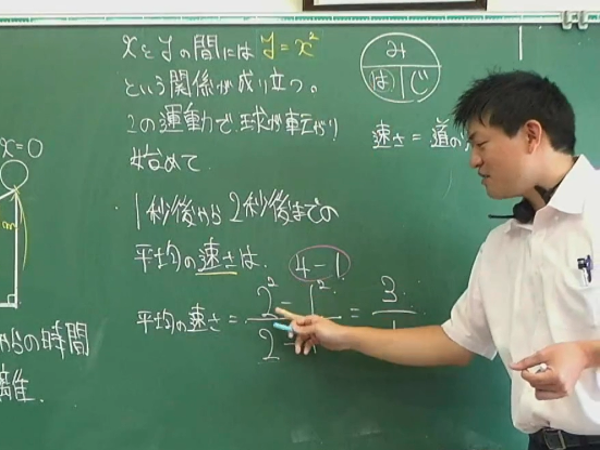 xとyの間には y=x²
という関係が成り立つ。
この運動で、球が転がり
始めて
1秒後から2秒後までの
平均の速さは、
4-1
平均の速さ = 2²-1² / 2-1 = 3 / 1
み
は じ
速さ = 道の
x=0
m
らの時間
離。